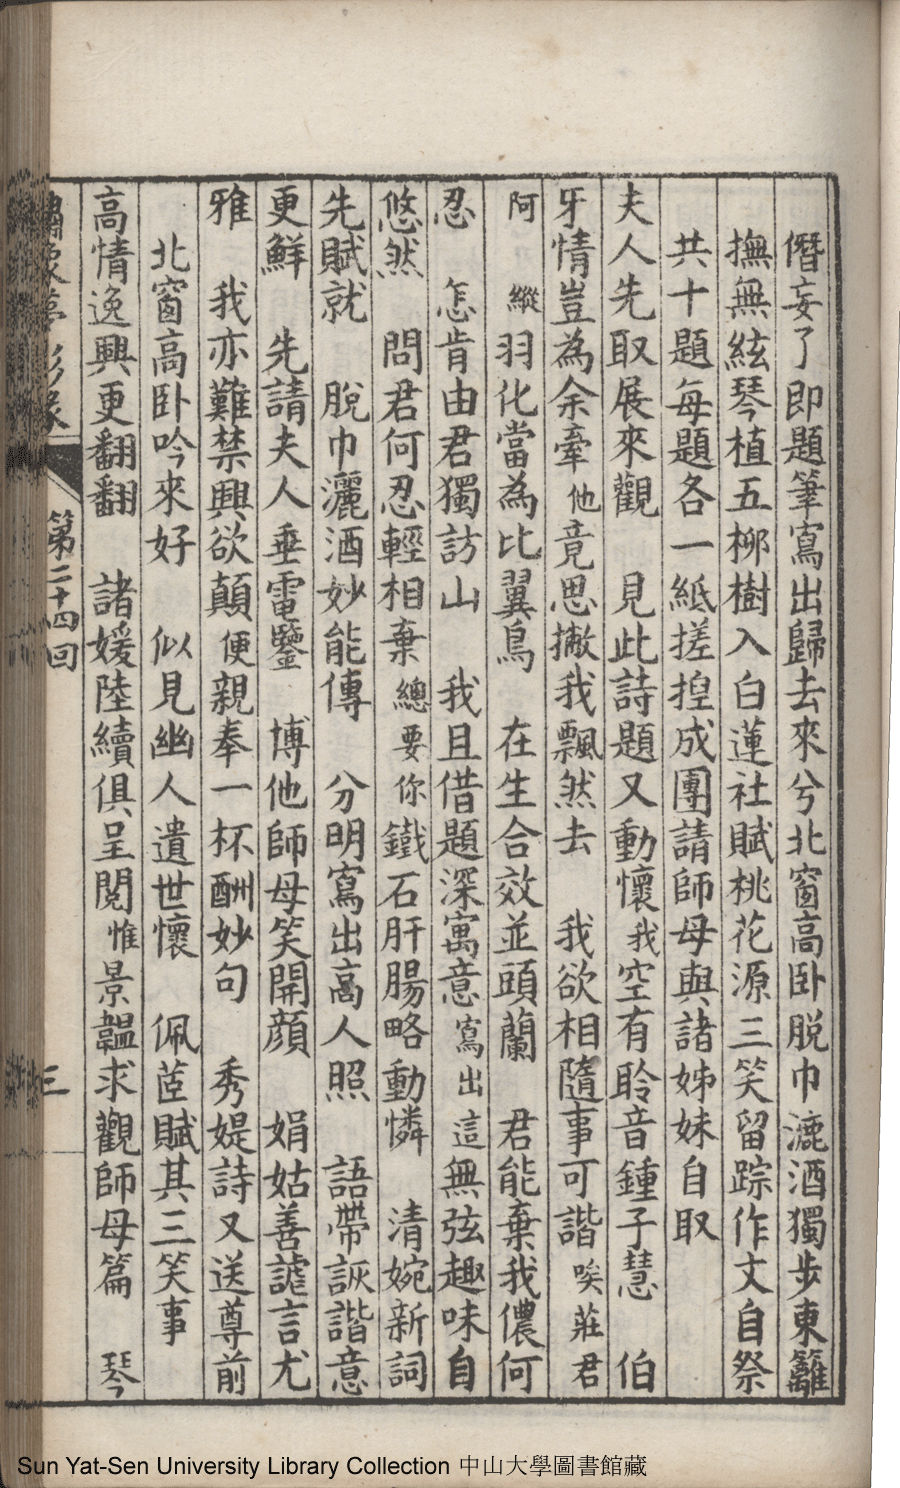 僭妄了即題筆寫出歸去來兮北窗高卧脫巾漉酒獨步東籬
撫無絃琴植五柳樹入白蓮社賦桃花源三笑留踪作文自祭
共十題每題各一紙搓揑成團請師母與諸姊妹自取
夫人先取展來觀 見此詩題又動懷 我空有聆音鍾子慧 伯
牙情豈為余牽 他竟思撇我飄然去 我欲相隨事可諧 唉莊君
阿 縱羽化當為比翼鳥 在生合效並頭蘭 君能棄我儂何
忍 怎肯由君獨訪山 我且借題深寓意 寫出這無弦趣味自
悠然 問君何忍輕相棄 總要你鐵石肝腸略動憐 清婉新詞
先賦就 脫巾灑酒妙能傳 分明寫出高人照 語帶詼諧意
更鮮 先請夫人垂電鑒 博他師母笑開顏 娟姑善謔言尤
雅 我亦難禁興欲顛 便親奉一杯酬妙句 秀媞詩又送尊前
北窗高卧吟來好 似見幽人遺世懷 佩茝賦其三笑事
高情逸興更翻翻 諸媛陸續俱呈閱 惟景韞求觀師母篇 琴
第二十四回
三
Sun Yat-Sen University Library Collection 中山大學圖書館藏